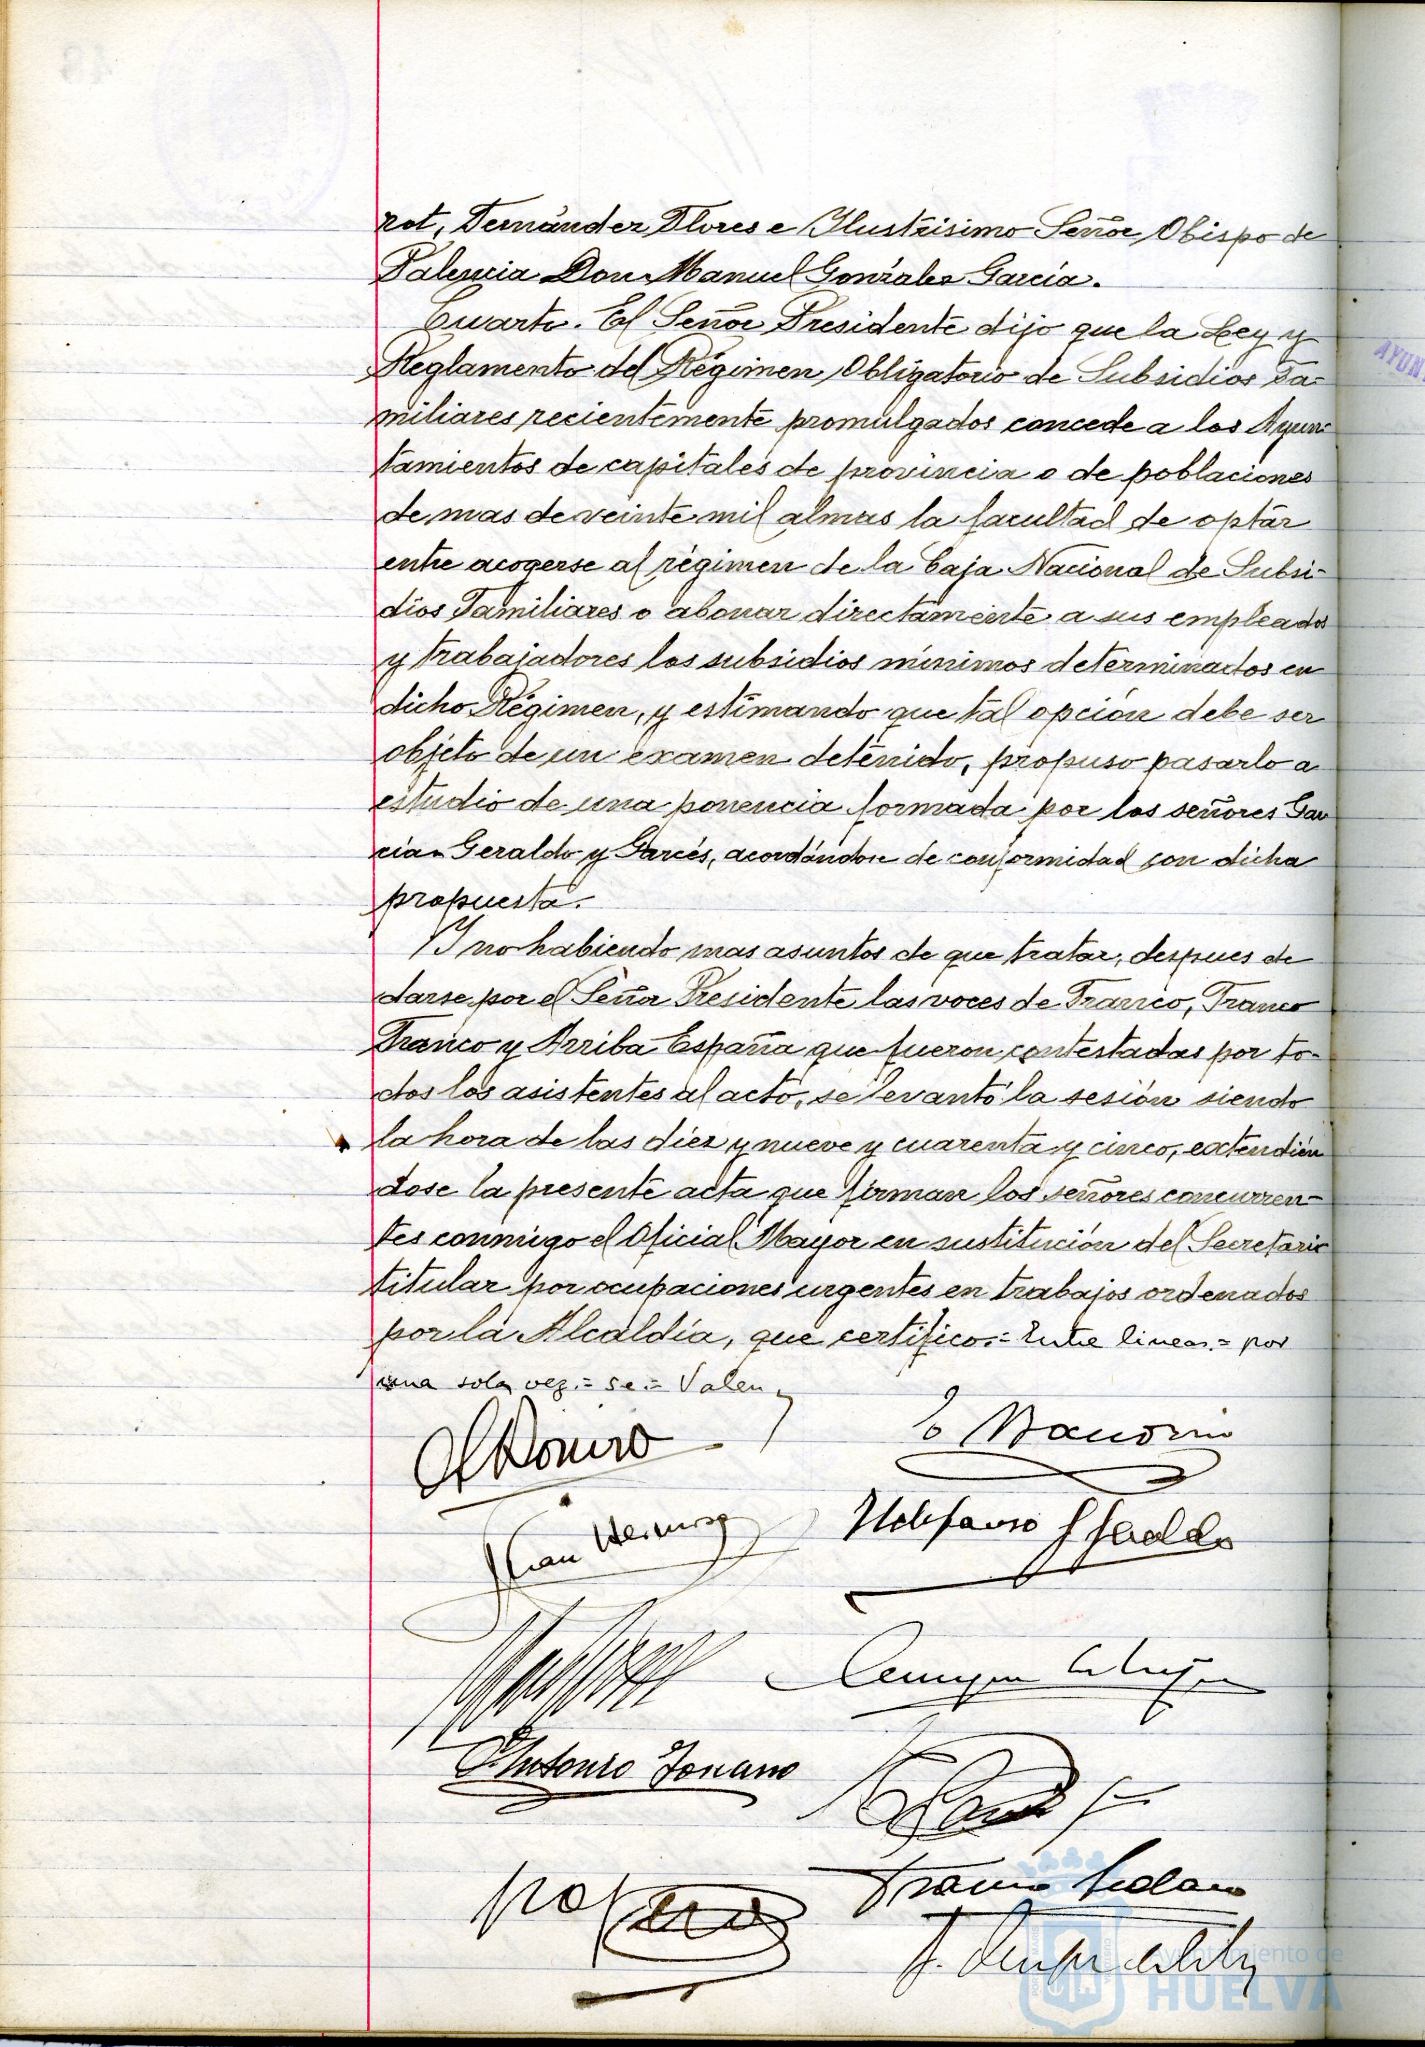 rot, Fernández Flores e Ilustrísimo Señor Obispo de
Palencia Don Manuel González García.
Cuarto. El Señor Presidente dijo que la Ley y
Reglamento del Régimen Obligatorio de Subsidios Fa-
miliares recientemente promulgados concede a los Ayun-
tamientos de capitales de provincia o de poblaciones
de mas de veinte mil almas la facultad de optar
entre acogerse al régimen de la Caja Nacional de Subsi-
dios Familiares o abonar directamente a sus empleados
y trabajadores los subsidios mínimos determinados en
dicho Régimen, y estimando que tal opción debe ser
objeto de un examen detenido, propuso pasarlo a
estudio de una ponencia formada por los señores Gar
cia Geraldo y Garcés, acordándose de conformidad con dicha
propuesta.
Y no habiendo mas asuntos de que tratar, despues de
darse por el Señor Presidente las voces de Franco, Franco
Franco y Arriba España que fueron contestadas por to-
dos los asistentes al acto, se levantó la sesión siendo
la hora de las diez y nueve y cuarenta y cinco, extendién
dose la presente acta que firman los señores concurren-
tes conmigo el Oficial Mayor en sustitución del Secretario
titular por ocupaciones urgentes en trabajos ordenados
por la Alcaldía, que certifico.= Entre lineas.= por
una sola vez.= se.= Valen
Ildefonso
Antonio
AYUN
Ayuntamiento de
HUELVA